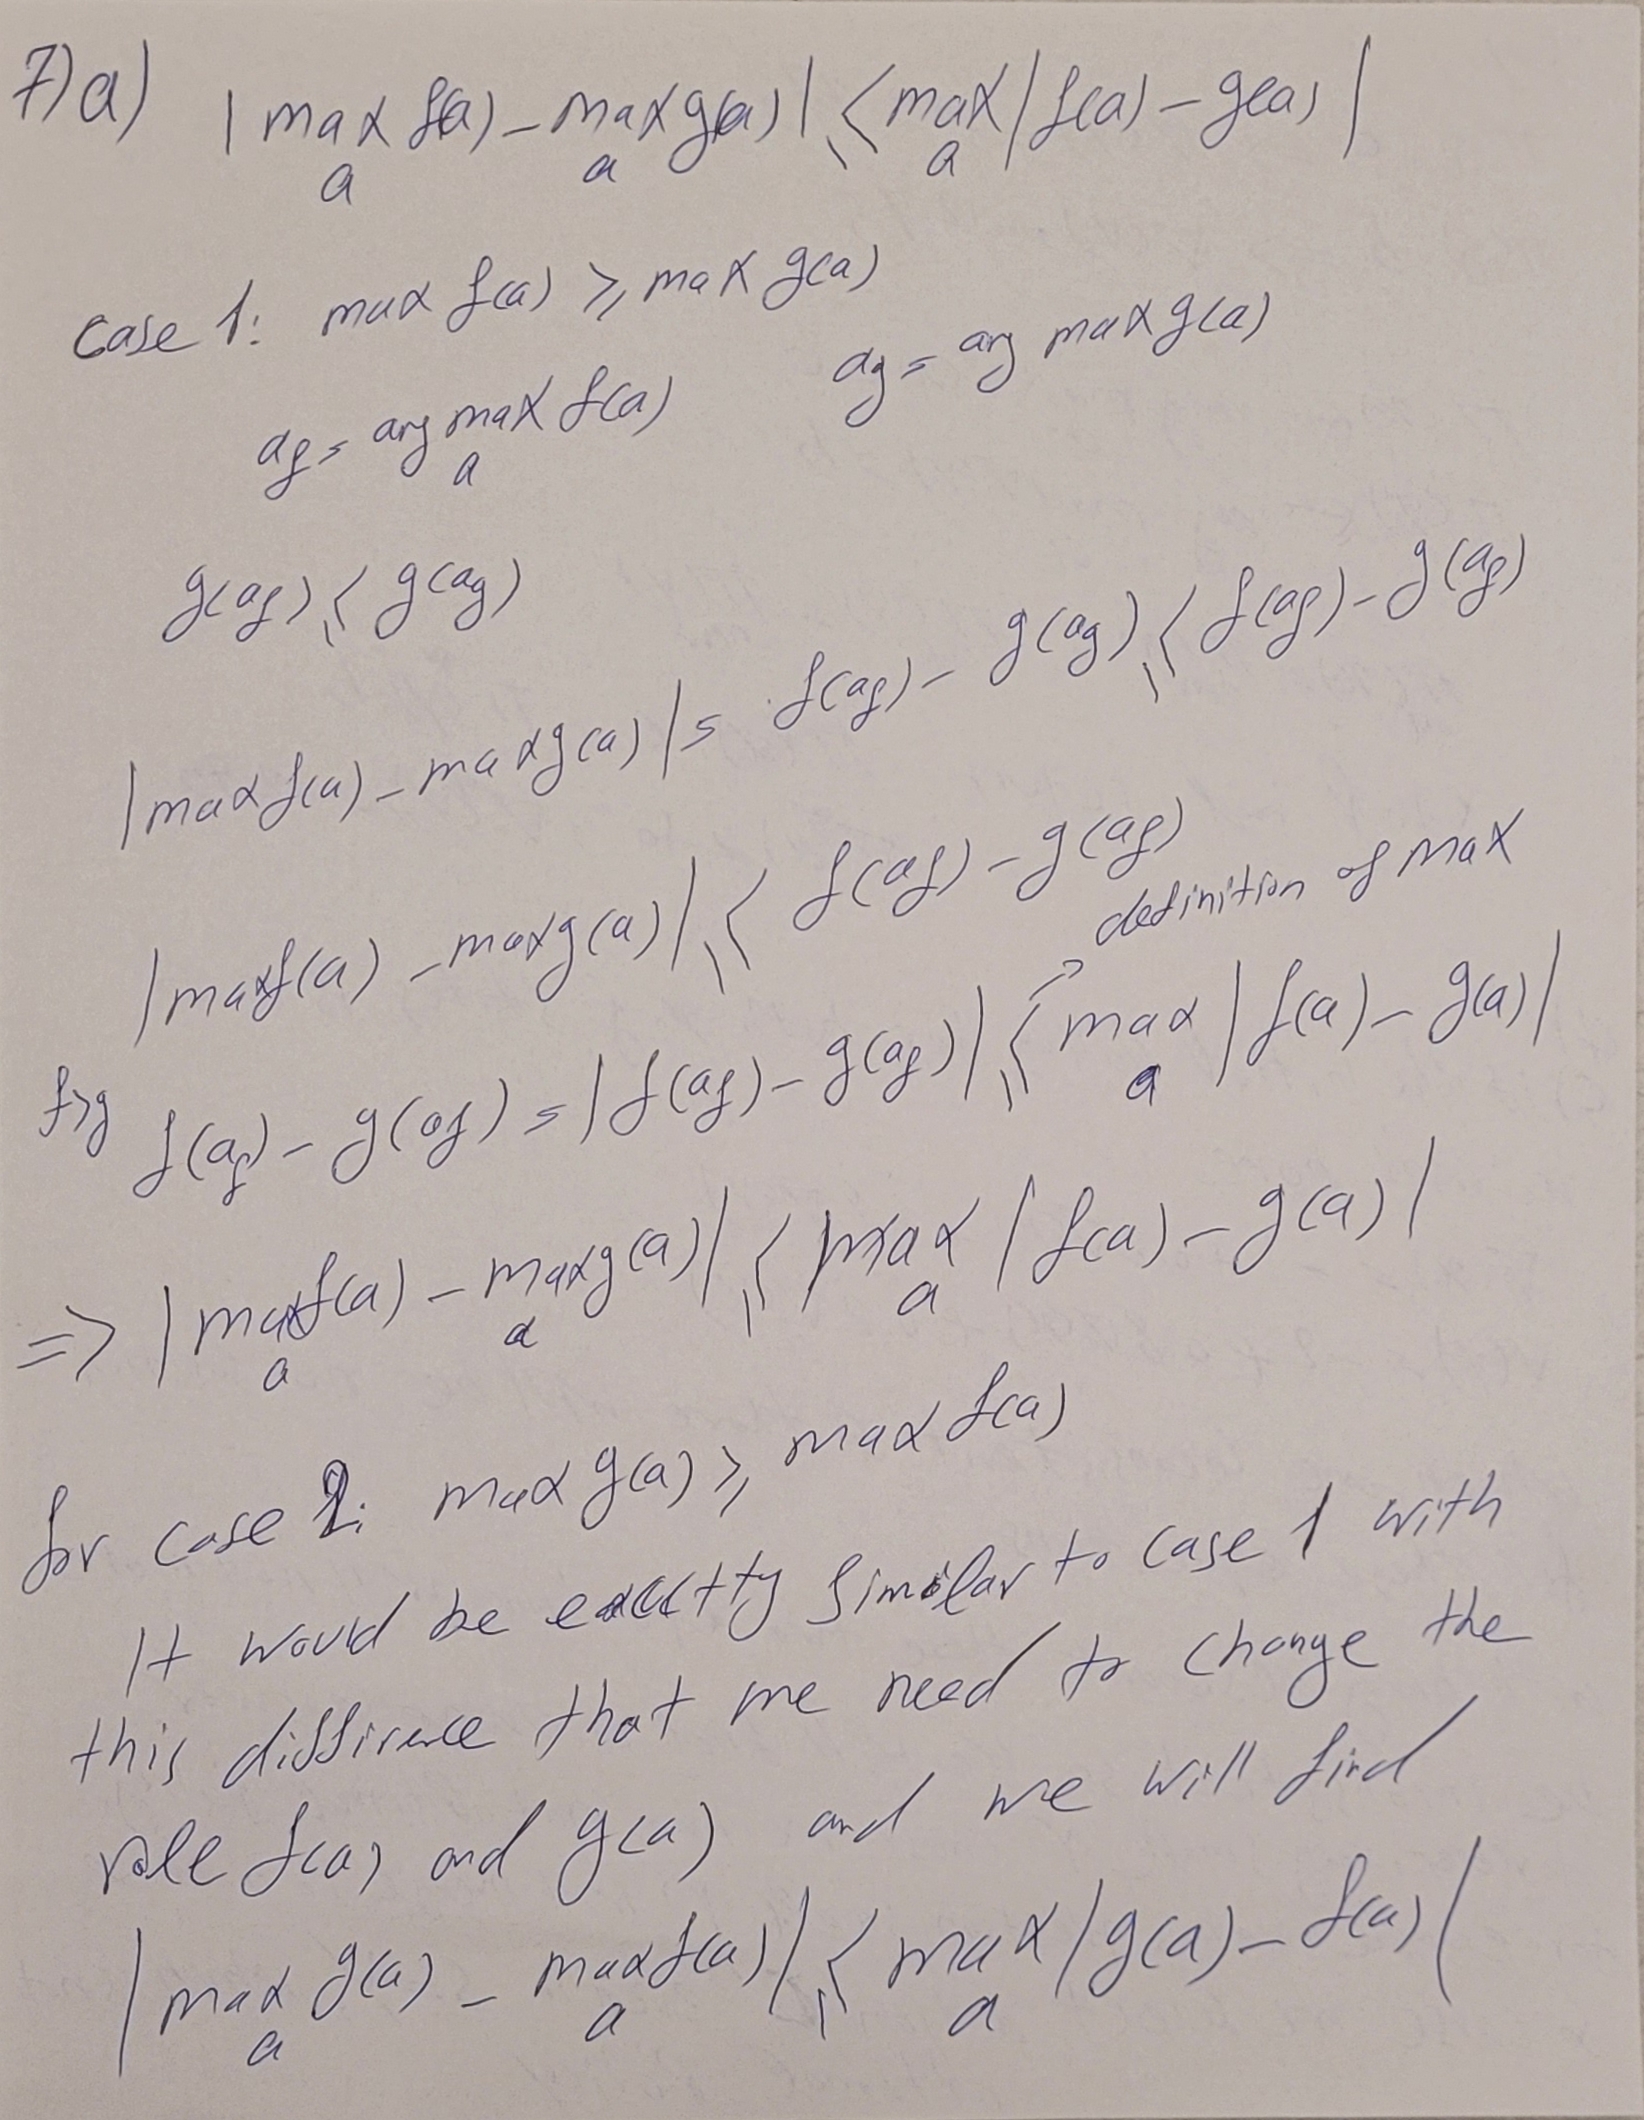 7) a) | max_a f(a) - max_a g(a) | ≤ max_a | f(a) - g(a) |
Case 1: max f(a) ≥ max g(a)
a_f = arg max_a f(a)    a_g = arg max g(a)
g(a_f) ≤ g(a_g)
| max f(a) - max g(a) | = f(a_f) - g(a_g) ≤ f(a_f) - g(a_f)
| max f(a) - max g(a) | ≤ f(a_f) - g(a_f)
definition of max
f>g f(a_f) - g(a_f) = | f(a_f) - g(a_f) | ≤ max_a | f(a) - g(a) |
=> | max_a f(a) - max_a g(a) | ≤ max_a | f(a) - g(a) |
for case 2: max g(a) ≥ max f(a)
It would be exactty similar to case 1 with
this diffirence that we need to change the
role f(a) and g(a) and we will find
| max_a g(a) - max_a f(a) | ≤ max_a | g(a) - f(a) |